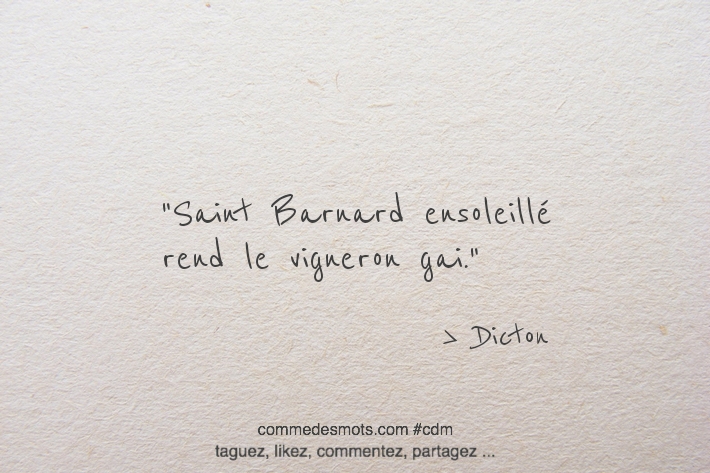 "Saint Barnard ensoleillé
rend le vigneron gai."
> Dicton
commedesmots.com #cdm
taguez, likez, commentez, partagez ...